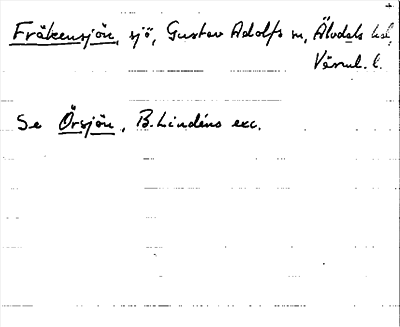 Fräkensjön, sjö, Gustav Adolfs sn, Älvdals hd,
Värml. l.
Se Örsjön, B. Lindéns exc.